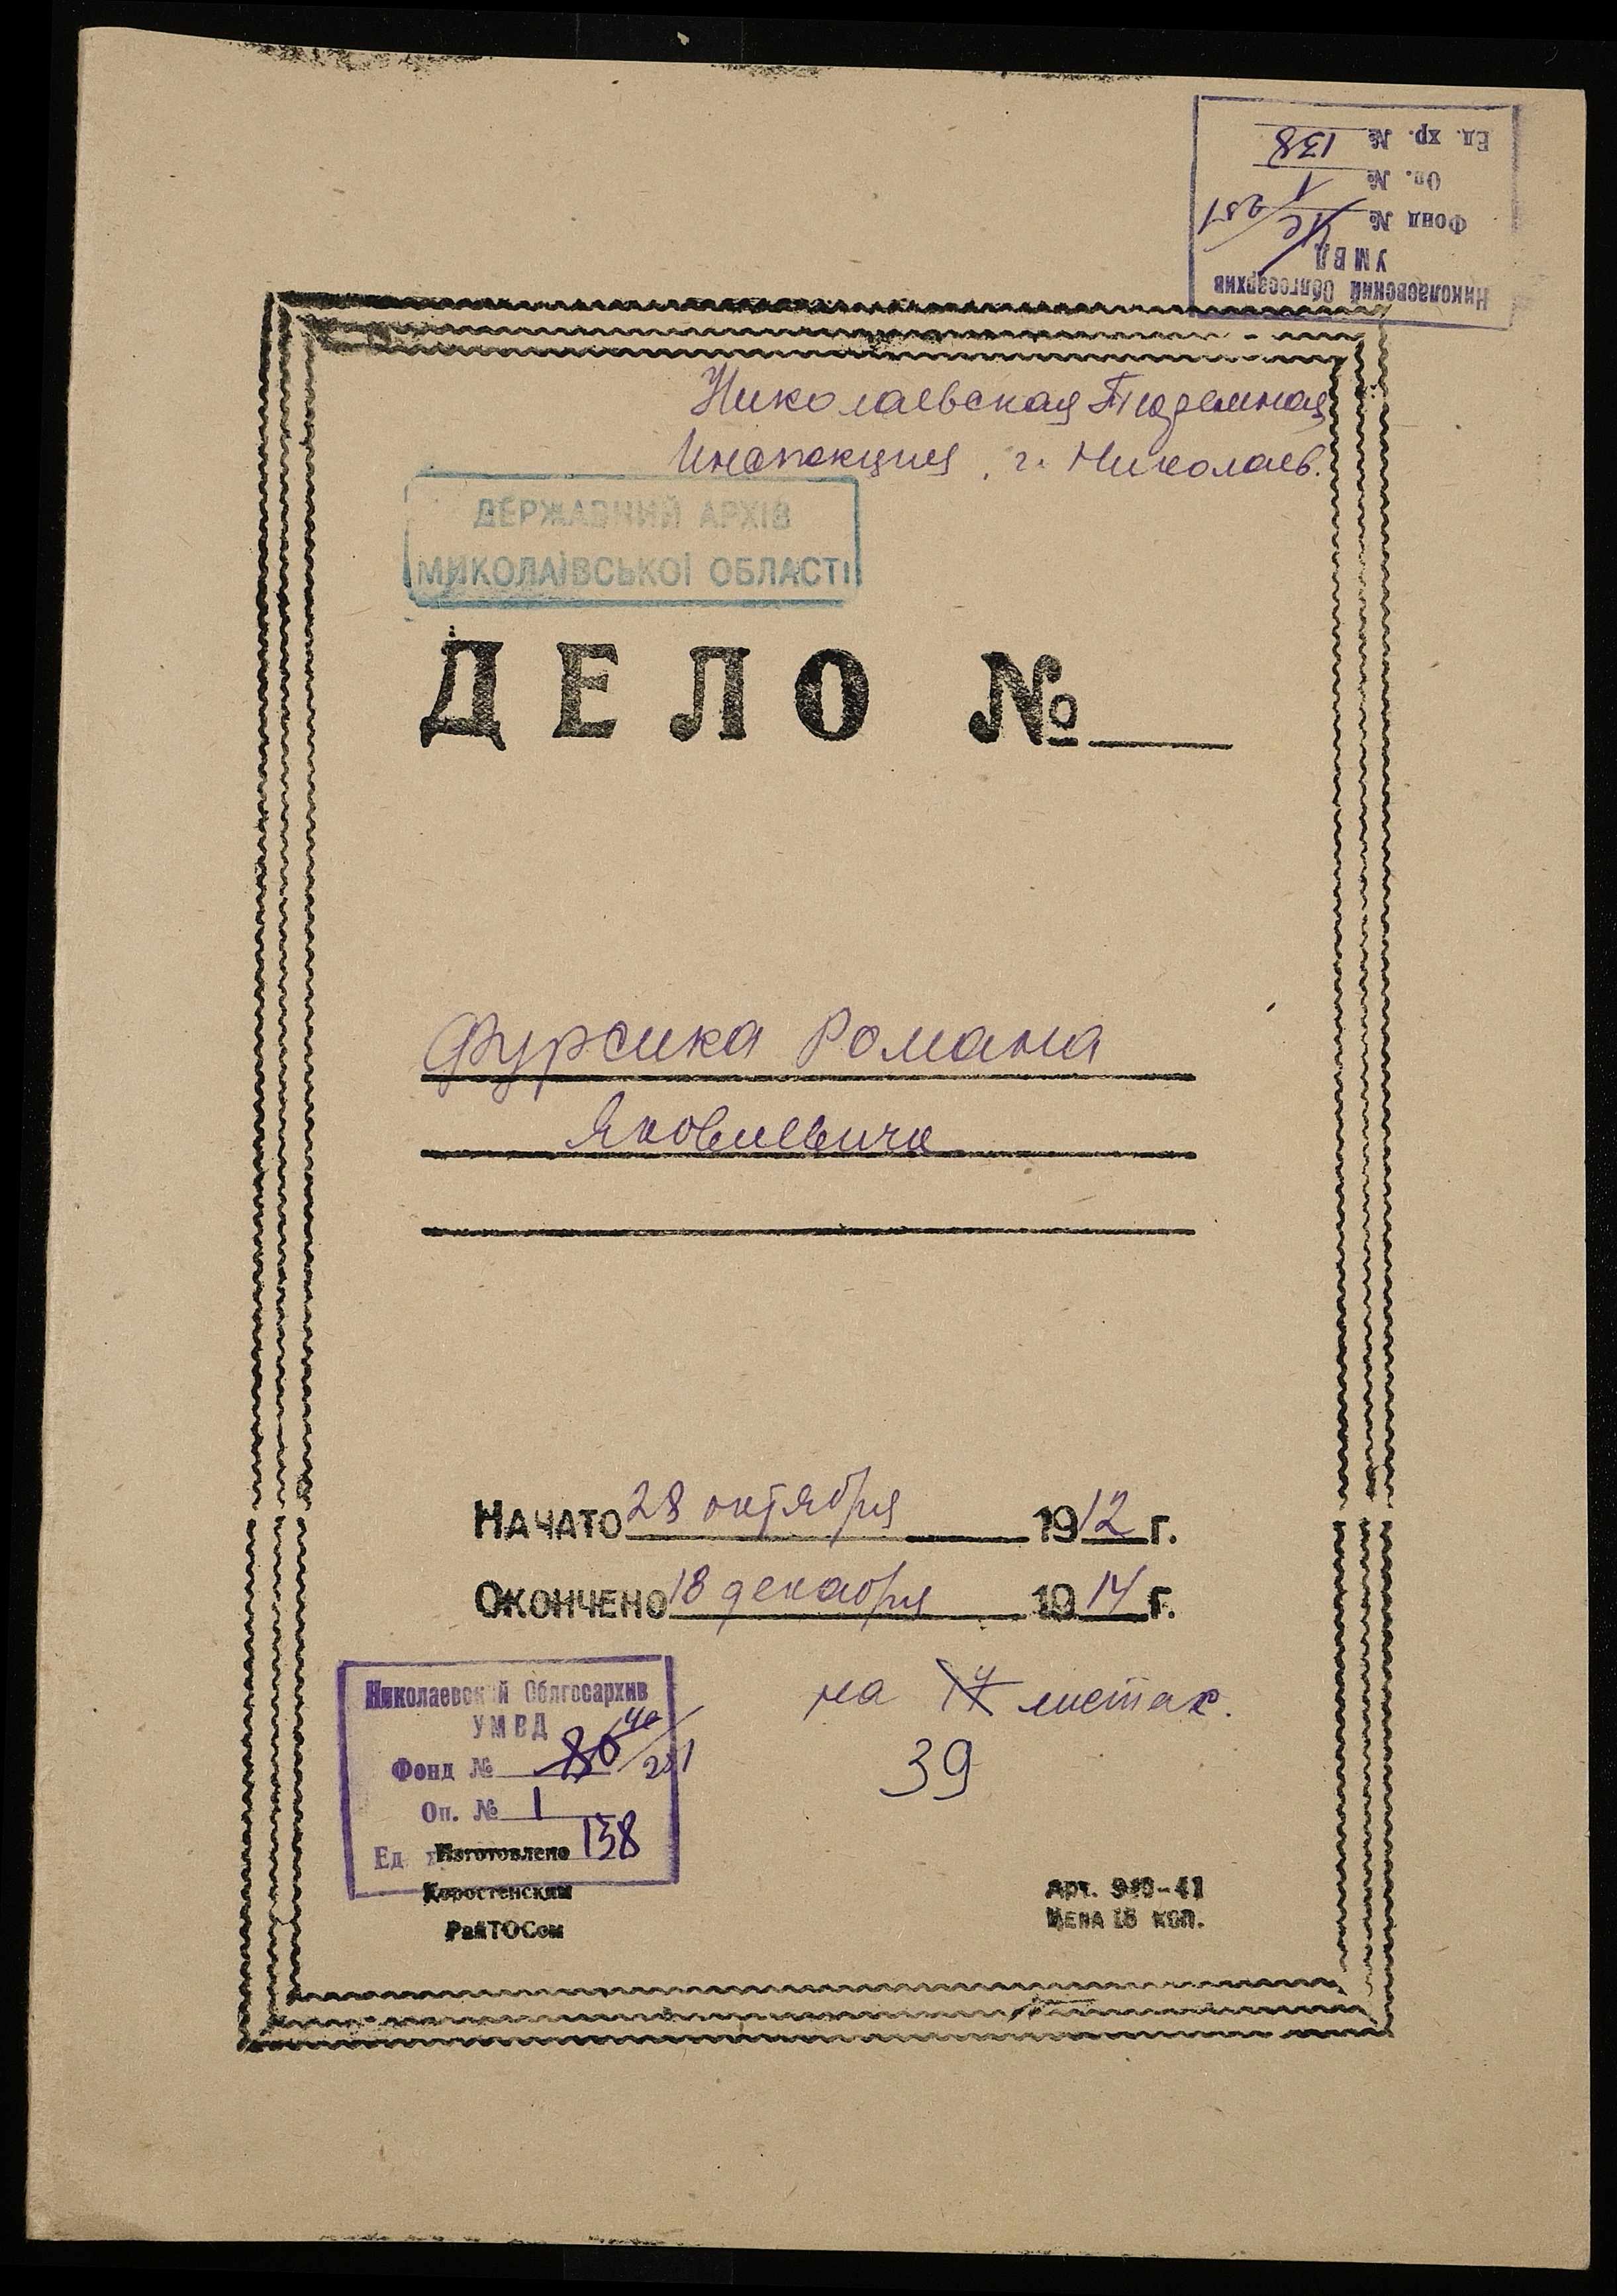 Николаевский Облгосархив
УМВД
Фонд № 251
Оп. № 1
Ед. хр. № 138
Николаевская Тюремная
Инспекция, г. Николаев.
ДЕРЖАВНИЙ АРХІВ
МИКОЛАЇВСЬКОЇ ОБЛАСТІ
ДЕЛО №
Фурсика Романа
Яковлевича
НАЧАТО 28 октября 1912 г.
ОКОНЧЕНО 18 декабря 1914 г.
на листах.
39
Николаевский Облгосархив
УМВД
Фонд № 251
Оп. № 1
Ед. 138
Изготовлено
Коростенским
РайТОСом
Арт.
ЦЕНА 15 КОП.